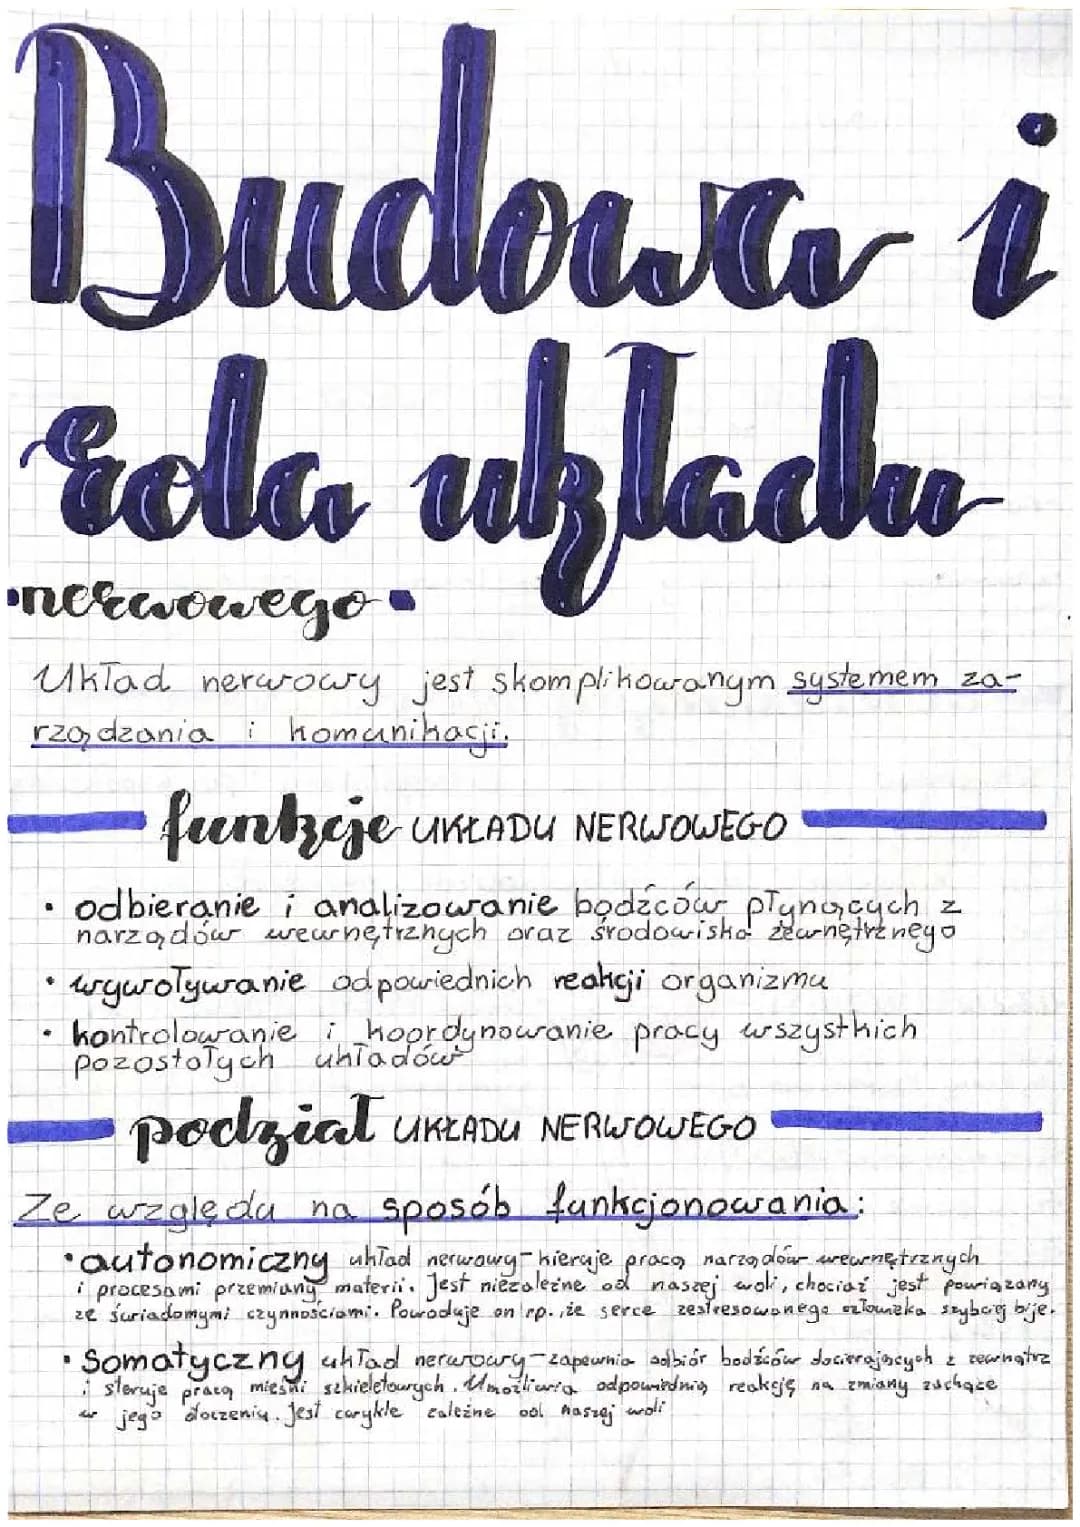 Budowa i
rola układu
•nerwowego•
Układ nerwowy jest skomplikowanym systemem za-
rządzania i komunikacji.
funkcje UKŁADU NERWOWEGO
• odbieranie i analizowanie bodźców płynących z
narządów wewnętrznych oraz środowiska zewnętrznego
• wywoływanie odpowiednich reakcji organizmu
• kontrolowanie i koordynowanie pracy wszystkich
pozostałych układów
podział UKŁADU NERWOWEGO
Ze względu na sposób funkcjonowania:
• autonomiczny układ nerwowy - kieruje pracą narządów wewnętrznych
i procesami przemiany materii. Jest niezależne od naszej woli, chociaż jest powiązany
ze świadomymi czynnościami. Powoduje on np., że serce zestresowanego człowieka szybciej bije.
• Somatyczny układ nerwowy - zapewnia odbiór bodźców docierających z zewnątrz
i steruje pracą mięśni szkieletowych. Umożliwia odpowiednią reakcję na zmiany zachące
w jego otoczeniu. Jest zwykle zależne od naszej woli